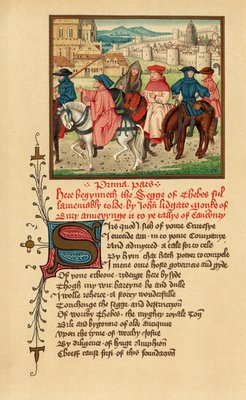 Prima Pars
Here begynneth the Segge of Thebes ful
lamentably tolde by John Lidgate Monke of
Bury annexynge it to ye tallys of Canterbury
Sirs quod I sith of youre curtesye
I entrede am in to youre Companye
And admytted a tale for to telle
By hym that hath power to compelle
I mene oure hoste governere and gyde
Of youre echeone rydenge here by side
Thogh my wit bareyne be and dulle
I wolle reherce a story wonderfulle
Touchenge the segge and destruccyon
Of worthy Thebes the myghty royale Ton
Bilt and bygonne of olde antiquite
Upon the tyme of worthy Josue
By diligence of kynge Amphion
Cheeff cause first of this foundacion